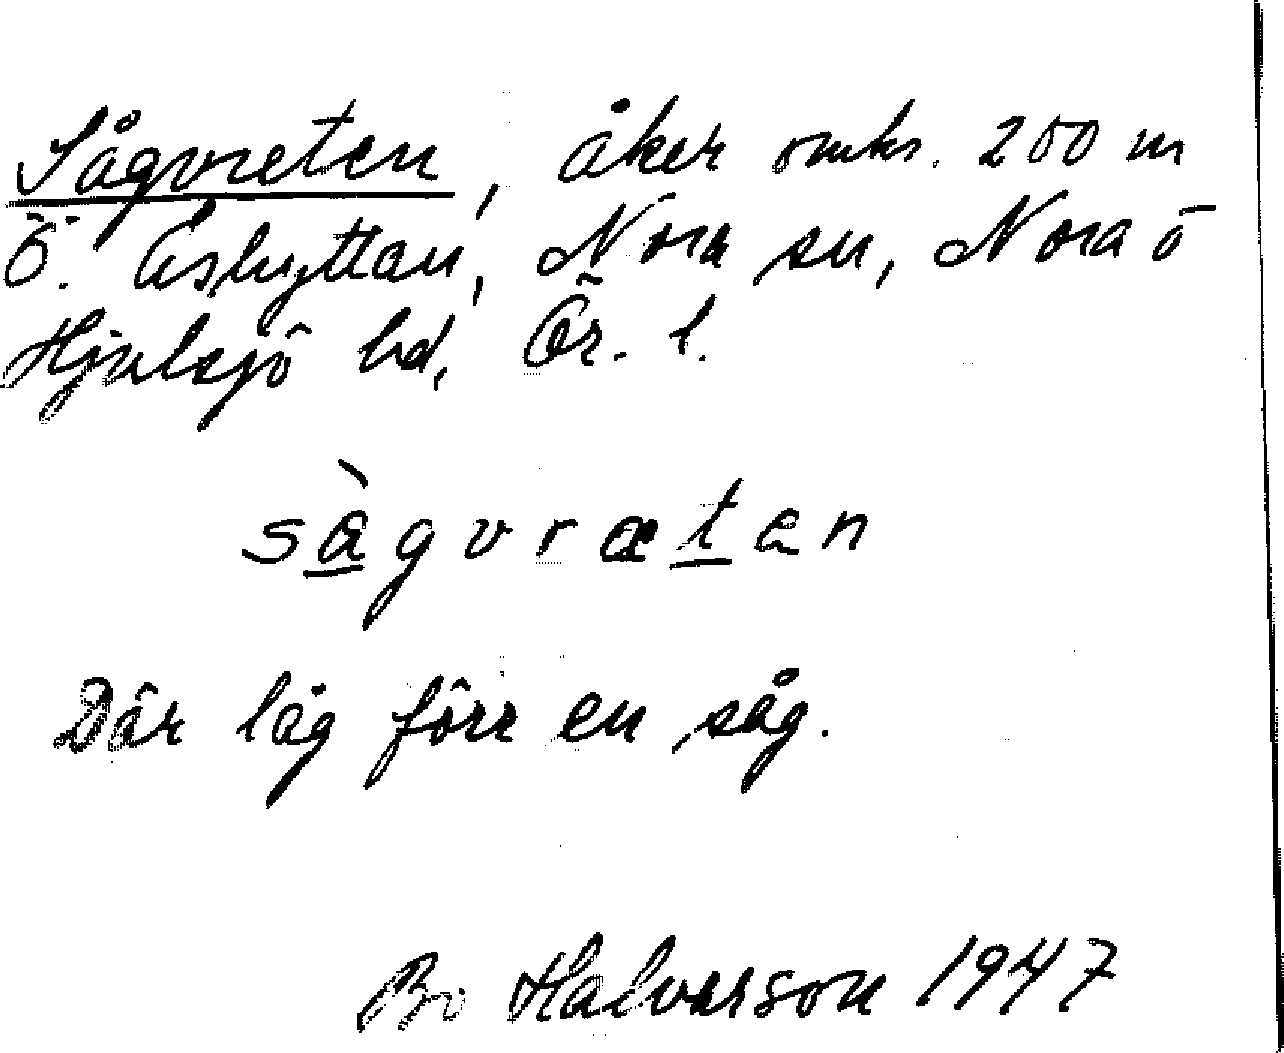 Sågvreten, åker omkr. 200 m
Ö. Åshyttan, Nora sn, Nora ō
Hjulsjö bd, Ör. l.
sågvræten
Där låg förr en såg.
Bo Halvarson 1947